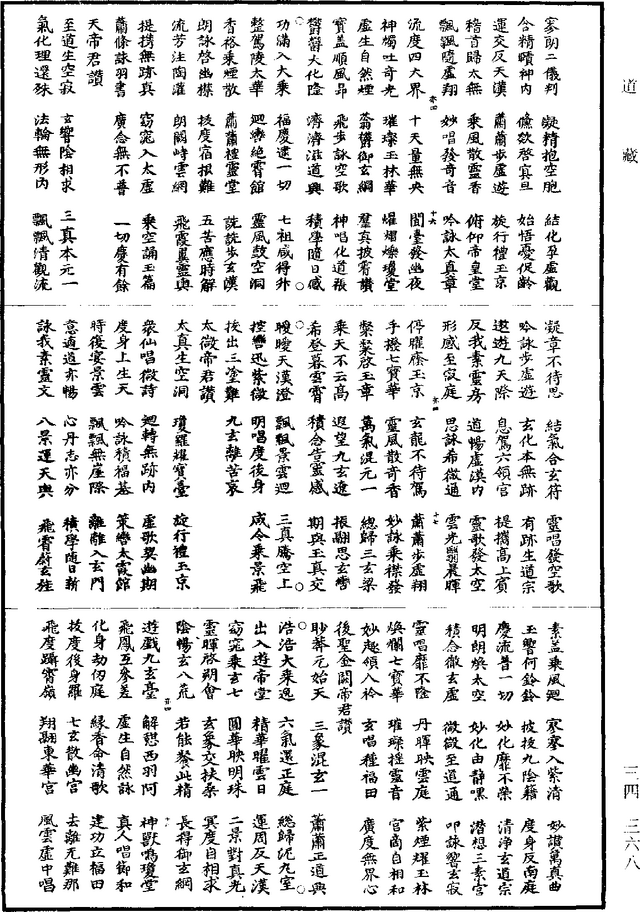 道藏
三四 三六八
寥朗二儀判 凝精抱空胞 結化孕虛觀
含精暎神內 倏欻啓冥旦 始悟憂促齡
運交反天漢 蕭蕭步虛遊 旋行禮玉京
稽首歸太無 乘風散靈香 俯仰帝皇堂
飄飄隨虛翔 妙唱發奇音 吟詠太真章
流度四大界 十天量無央 開臺發幽夜
神燭吐奇光 璀璨玉林華 燿熠爍瓊堂
虛生自然煙 蓊鬱御玄綱 羣真披霄讚
寶蓋順風昂 飛步詠空歌 神唱化道張
鬱鬱大化隆 濟濟滋道興 積學隨日感
功滿入大乘 福慶逮一切 七祖咸得升
整駕陵太華 迴巒絕霄館 靈風鼓空洞
香裕乘煙散 蕭蕭禮靈堂 詵詵步玄漢
朗詠啓幽襟 拔度宿根難 五苦應時解
流芳注陶灌 朗闕峙雲綱 飛霞翼靈輿
提携無跡真 窈窕入太虛 乘空誦玉篇
蕭條詠羽書 廣念無不普 一切慶有餘
天帝君讚
至道生空寂 玄響陰相求 三真本元一
氣化理還殊 法輪無形內 飄飄清觀流
凝章不待思 結氣合玄符 靈唱發空歌
吟詠步虛遊 玄化本無跡 有跡生道宗
遨遊九天際 息駕六領宮 提攜高上賓
反我素靈房 道暢虛漠內 靈歌發太空
形感至寂庭 思詠希微通 雲光翳晨暉
停驂際玉京 玄龍不待駕 蕭蕭步虛翔
手擥七寶華 靈風散奇香 妙詠乘襟發
粲粲啓玉章 萬氣混元一 總歸三玄梁
乘天不云高 遐望九玄遼 振翮思玄響
希登暮雲霄 積念告靈感 期與玉真交
曖曖天漢澄 飄飄景雲迴 三真騰空上
控轡迅紫微 明唱度後身 咸令乘景飛
拔出三塗難 九玄離苦哀
太微帝君讚
太真生空洞 瓊羅耀寶臺 旋行禮玉京
衆仙唱微詩 迴轉無跡內 虛歌契幽期
度身上生天 吟詠積福基 策轡太霞館
時復宴景雲 飄飄無崖際 離離入玄門
意適道亦暢 心丹志亦分 積學隨日新
詠我素靈文 八景運天輿 飛霄蔚玄旌
素蓋乘風迴 寥寥入紫清 妙讃萬真曲
玉響何鈴鈴 披拔九陰籍 度身反南庭
慶流普一切 妙化靡不榮 清淨玄道宗
明朗煥太空 妙化由靜嘿 潛想三素宮
積念徹玄虛 微微至道通 叩詠響玄寂
靈唱靡不隆 丹暉映靈庭 紫煙耀玉林
煥爛七寶華 璀璨摧靈音 宮商自相和
妙趣領入衿 玄唱種福田 廣度無界心
後聖金闕帝君讚
眇莽元始天 三象混玄一 蕭蕭正道興
浩浩大來逸 六氣還正庭 總歸泥九室
出入遊帝堂 精華曜雲日 運周反天漢
窈窕乘玄七 圓華映明珠 二景對真光
靈暉啓朔會 玄象交扶桑 冥度自相求
陰暢玄八荒 若能餐此精 長得御玄綱
遊戲九玄臺 解憩西羽阿 神獸鳴瓊堂
飛鳳互參差 虛生自然詠 真人唱御和
化身劫仞庭 緣香命清歌 建功立福田
拔度後身羅 七玄散幽宮 去離无難那
飛度躋霄嶺 翔翮東華宮 風雲虛中唱